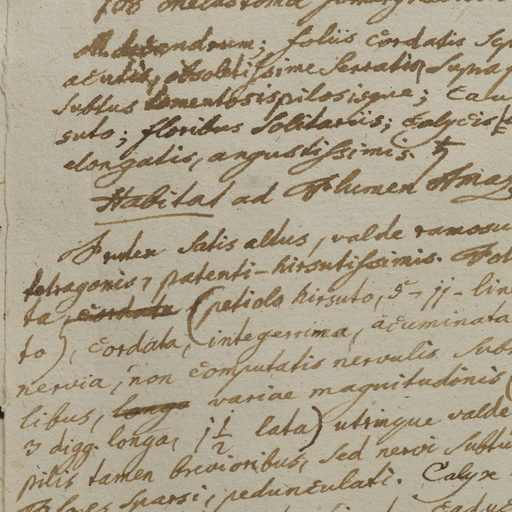 foliis cordatis
acutis, obsoletissime serratis, supra
subtus tomentosis pilosisque;
suto; floribus solitariis; calycis
elongatis, angustissimis. ♄
Habitat ad Flumen Amaz
Frutex satis altus, valde ramosu
tetragonis, patenti-hirsutissimis. Fol
ta, cordata (petiolo hirsuto, 5-jj-lin
to), cordata, integerrima, acuminata
nervia, non computatis nervulis sub
libus, longa variae magnitudinis (
3 digg. longa, j 1/2 lata) utrinque valde
pilis tamen brevioribus, sed nervi subtu
Flores sparsi, pedunculati. Calyx